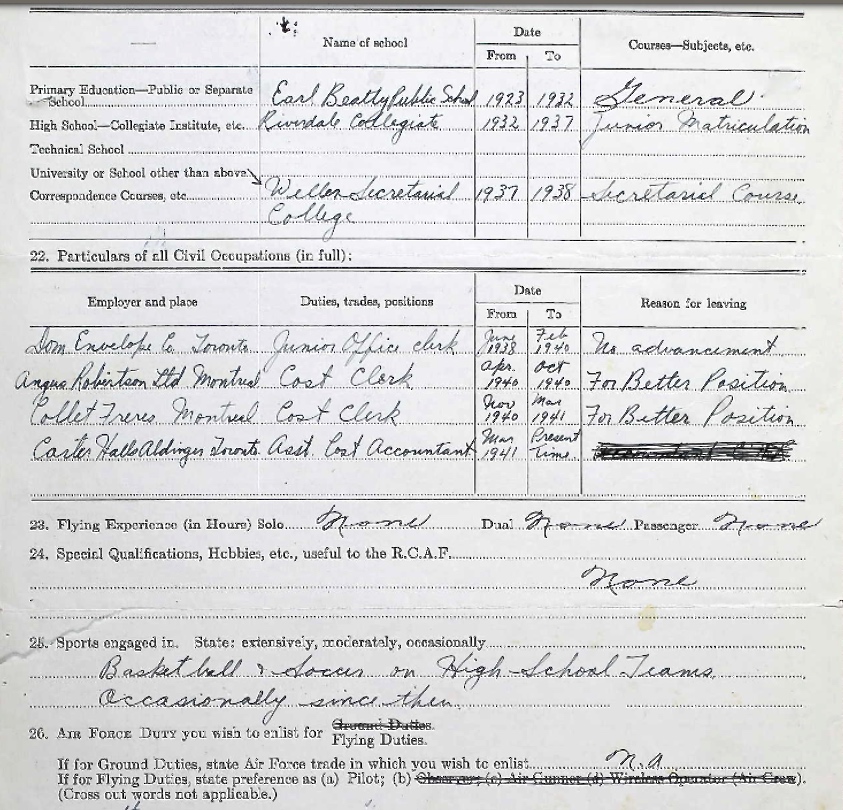 Name of school
Date
From To
Courses—Subjects, etc.
Primary Education—Public or Separate
School Earl Beatty Public School 1923 1932 General
High School—Collegiate Institute, etc. Riverdale Collegiate 1932 1937 Junior Matriculation
Technical School
University or School other than above
Correspondence Courses, etc. Weller Secretarial 1937 1938 Secretarial Course
College
22. Particulars of all Civil Occupations (in full):
Employer and place Duties, trades, positions Date Reason for leaving
From To
Dom Envelope Co. Toronto Junior Office clerk June 1938 Feb 1940 No advancement
Angus Robertson Ltd Montreal Cost Clerk Apr. 1940 Oct 1940 For Better Position
Collet Freres Montreal Cost Clerk Nov 1940 Mar 1941 For Better Position
Carter Halls Aldinger Toronto Asst. Cost Accountant Mar 1941 Present Time
23. Flying Experience (in Hours) Solo None Dual None Passenger None
24. Special Qualifications, Hobbies, etc., useful to the R.C.A.F.
None
25. Sports engaged in. State: extensively, moderately, occasionally
Basketball & Soccer on High School Teams.
Occasionally since then.
26. AIR FORCE DUTY you wish to enlist for Ground Duties.
Flying Duties.
If for Ground Duties, state Air Force trade in which you wish to enlist N.A.
If for Flying Duties, state preference as (a) Pilot; (b) Observer; (c) Air Gunner (d) Wireless Operator (Air Crew).
(Cross out words not applicable.)